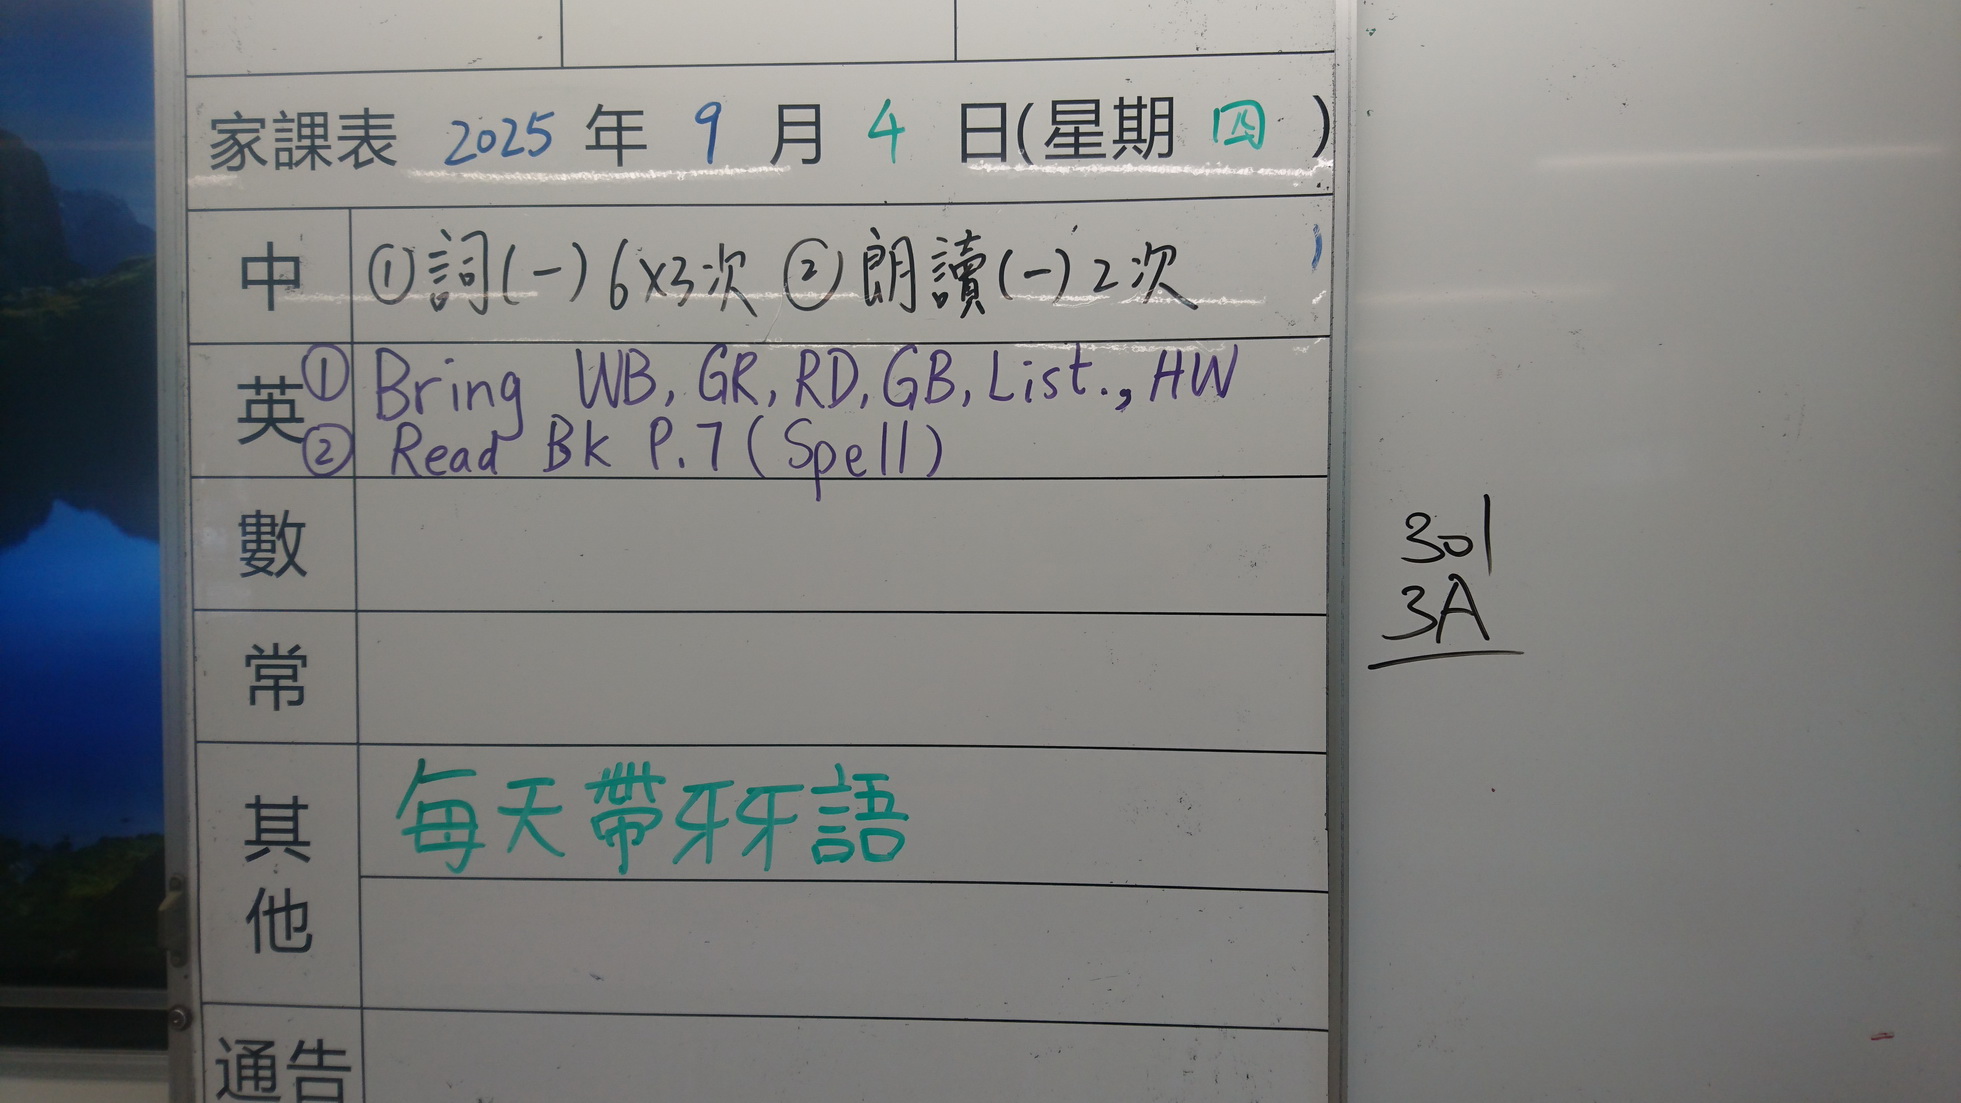 家課表 2025 年 9 月 4 日(星期 四 )
中 ①詞(一)6x3次 ②朗讀(一)2次
英 ① Bring WB, GR, RD, GB, List., HW
② Read Bk P.7 (Spell)
數
常
其他 每天帶牙牙語
通告
301
3A